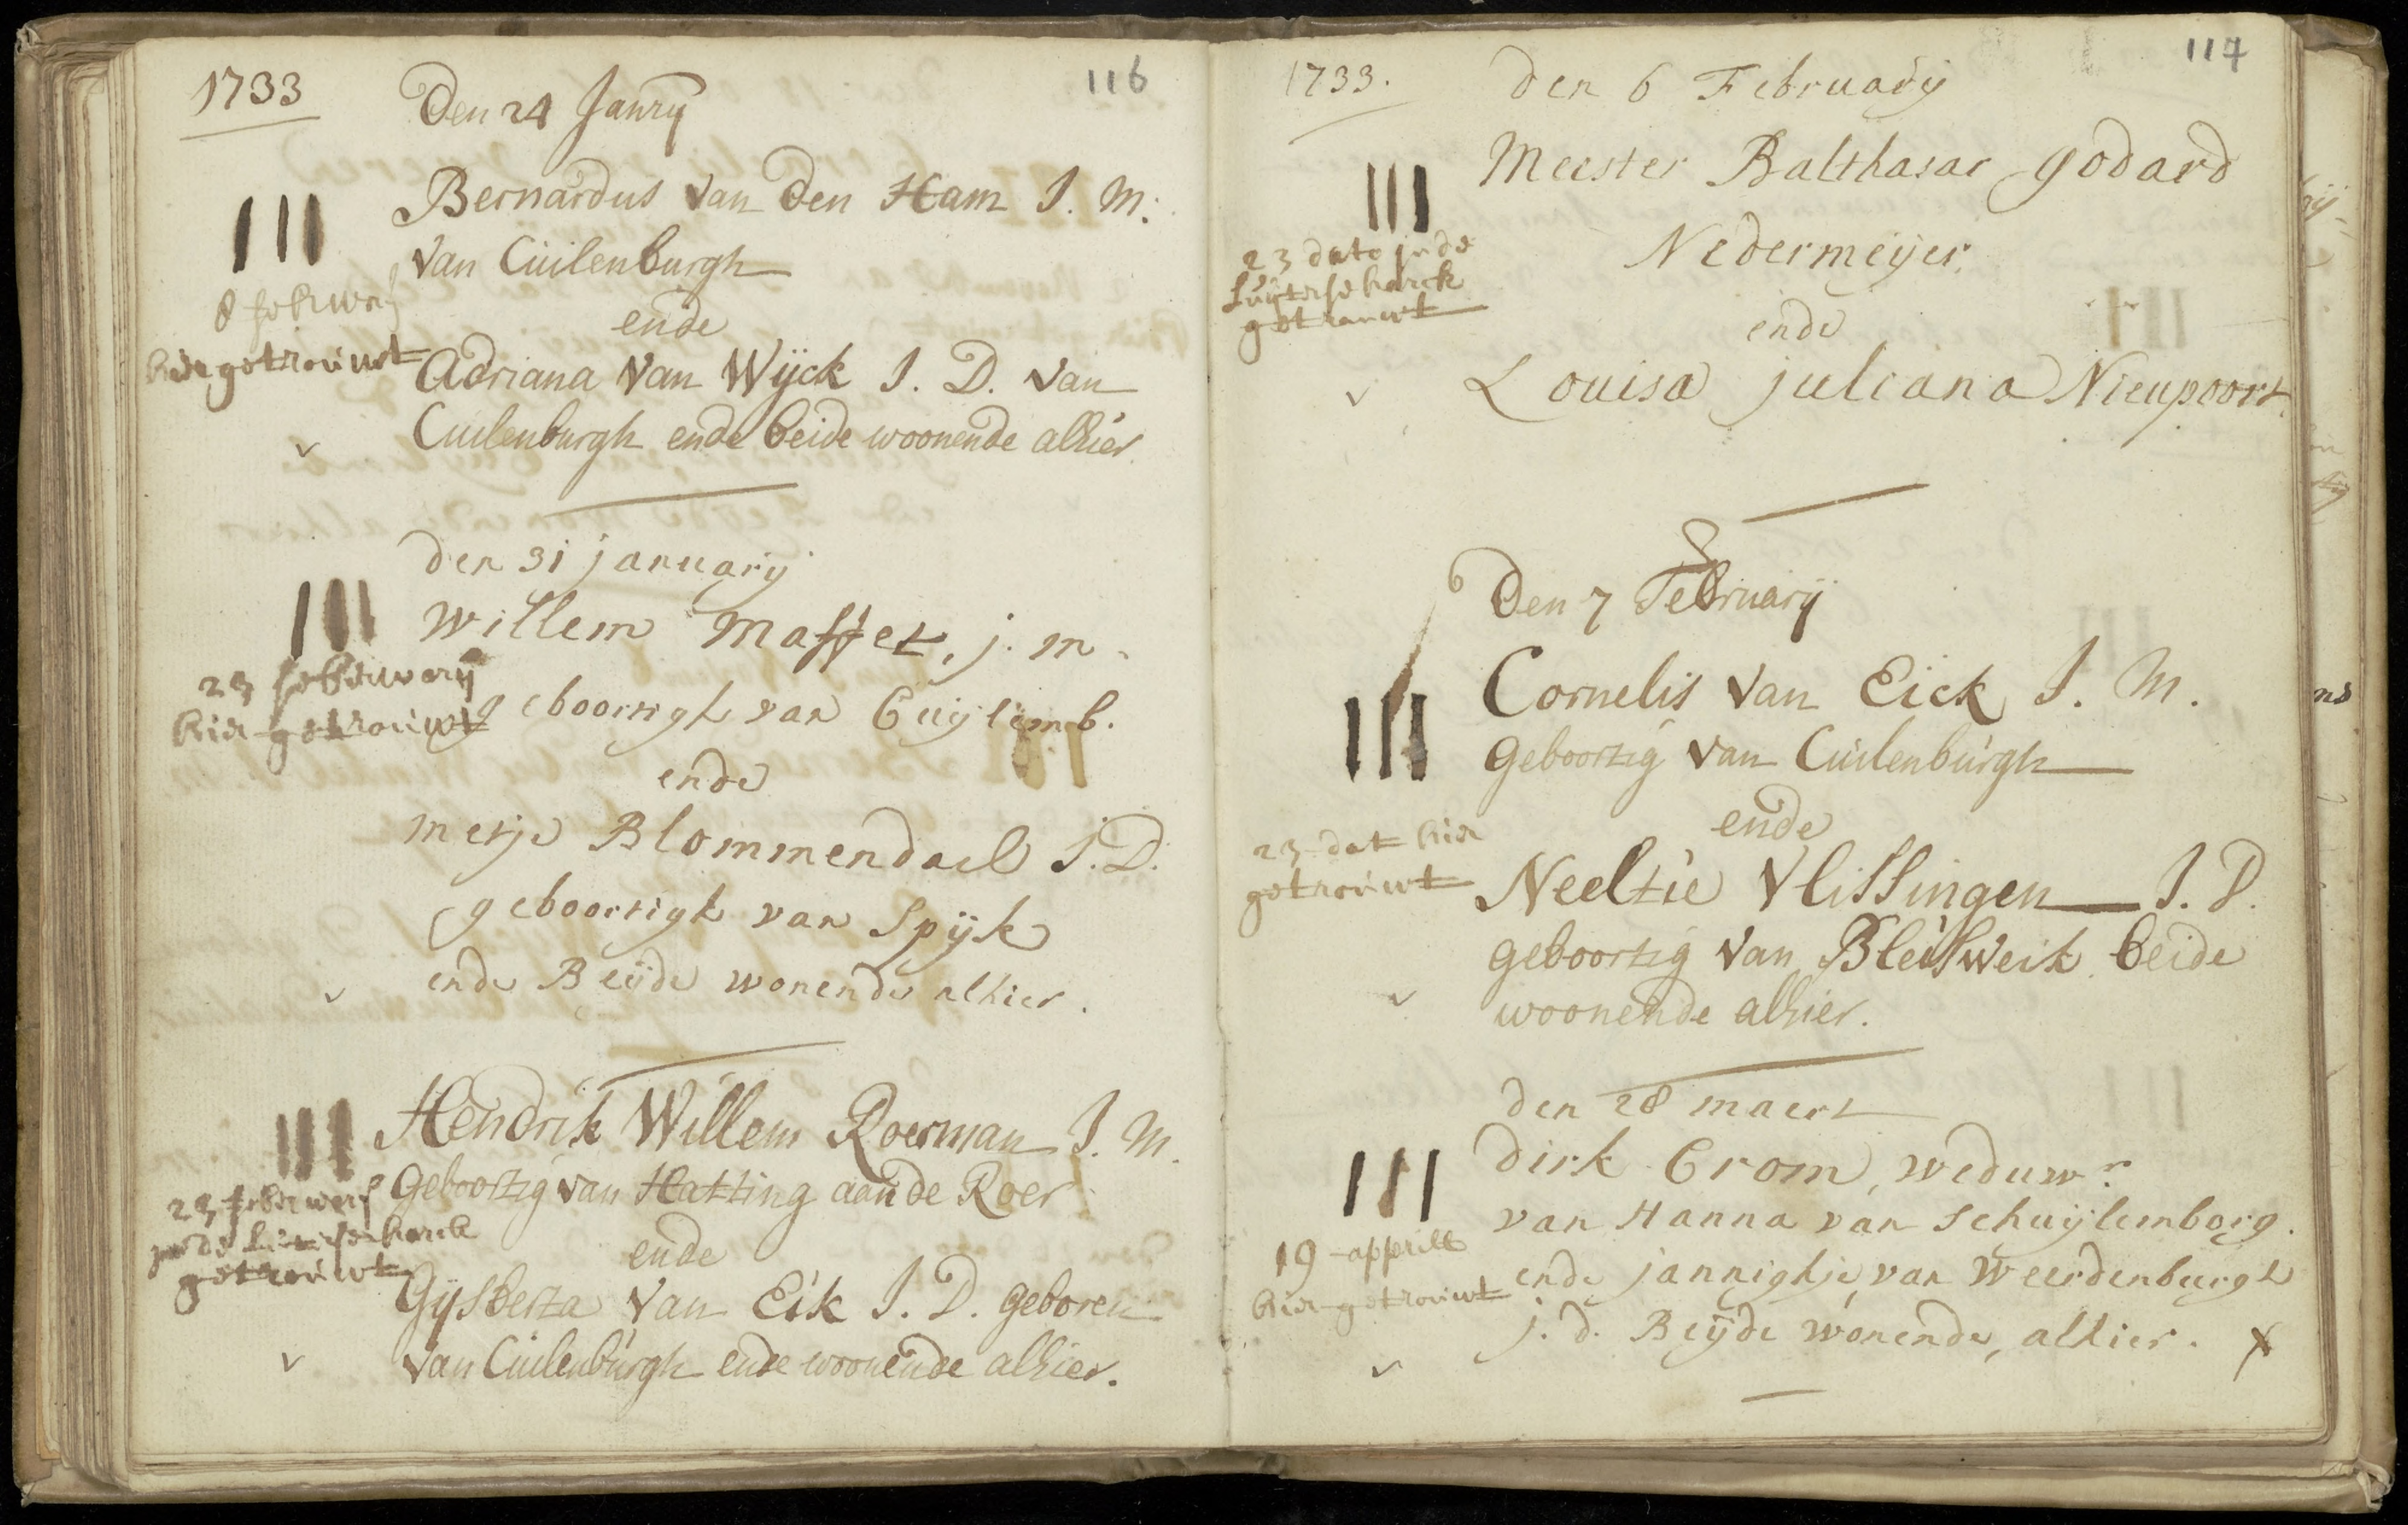 1733
116
Den 24 Janrij
Bernardus van den Ham J. M.
van Cuilenburgh
8 feberwarij
hier getrouwt
ende
Adriana van Wijck J. D. van
Cuilenburgh ende beide woonende alhier
den 31 januarij
Willem Maffet, j. m.
23 feberwarij
hier getrouwt
geboortigh van Cuijlemb.
ende
metje Blommendael J. D.
geboortigh van Spijk
ende Beijde wonende alhier.
Hendrik Willem Roerman J. M.
Geboortig van Hatting aan de Roer
23 feberwarij
in de
getrouwt
ende
Gijsberta van Eik J. D. geboren
van Cuilenburgh ende woonende alhier.
1733.
117
den 6 Februarij
Meester Balthasar godard
Nedermeijer
23 dato in de
Luijterse karck
getrouwt
ende
Louisa juliana Nieupoort.
Den 7 Februarij
Cornelis van Eick J. M.
geboortig van Cuilenburgh
ende
23 dat hier
getrouwt
Neeltie Vlissingen J. D.
geboortig van Bleisweik beide
woonende alhier.
den 28 maert
dirk Crom, weduwr
van Hanna van Schuijlemborg.
19 apprill
hier getrouwt
ende jannighje van Weerdenburgh
j. d. Beijde wonende, alhier. X